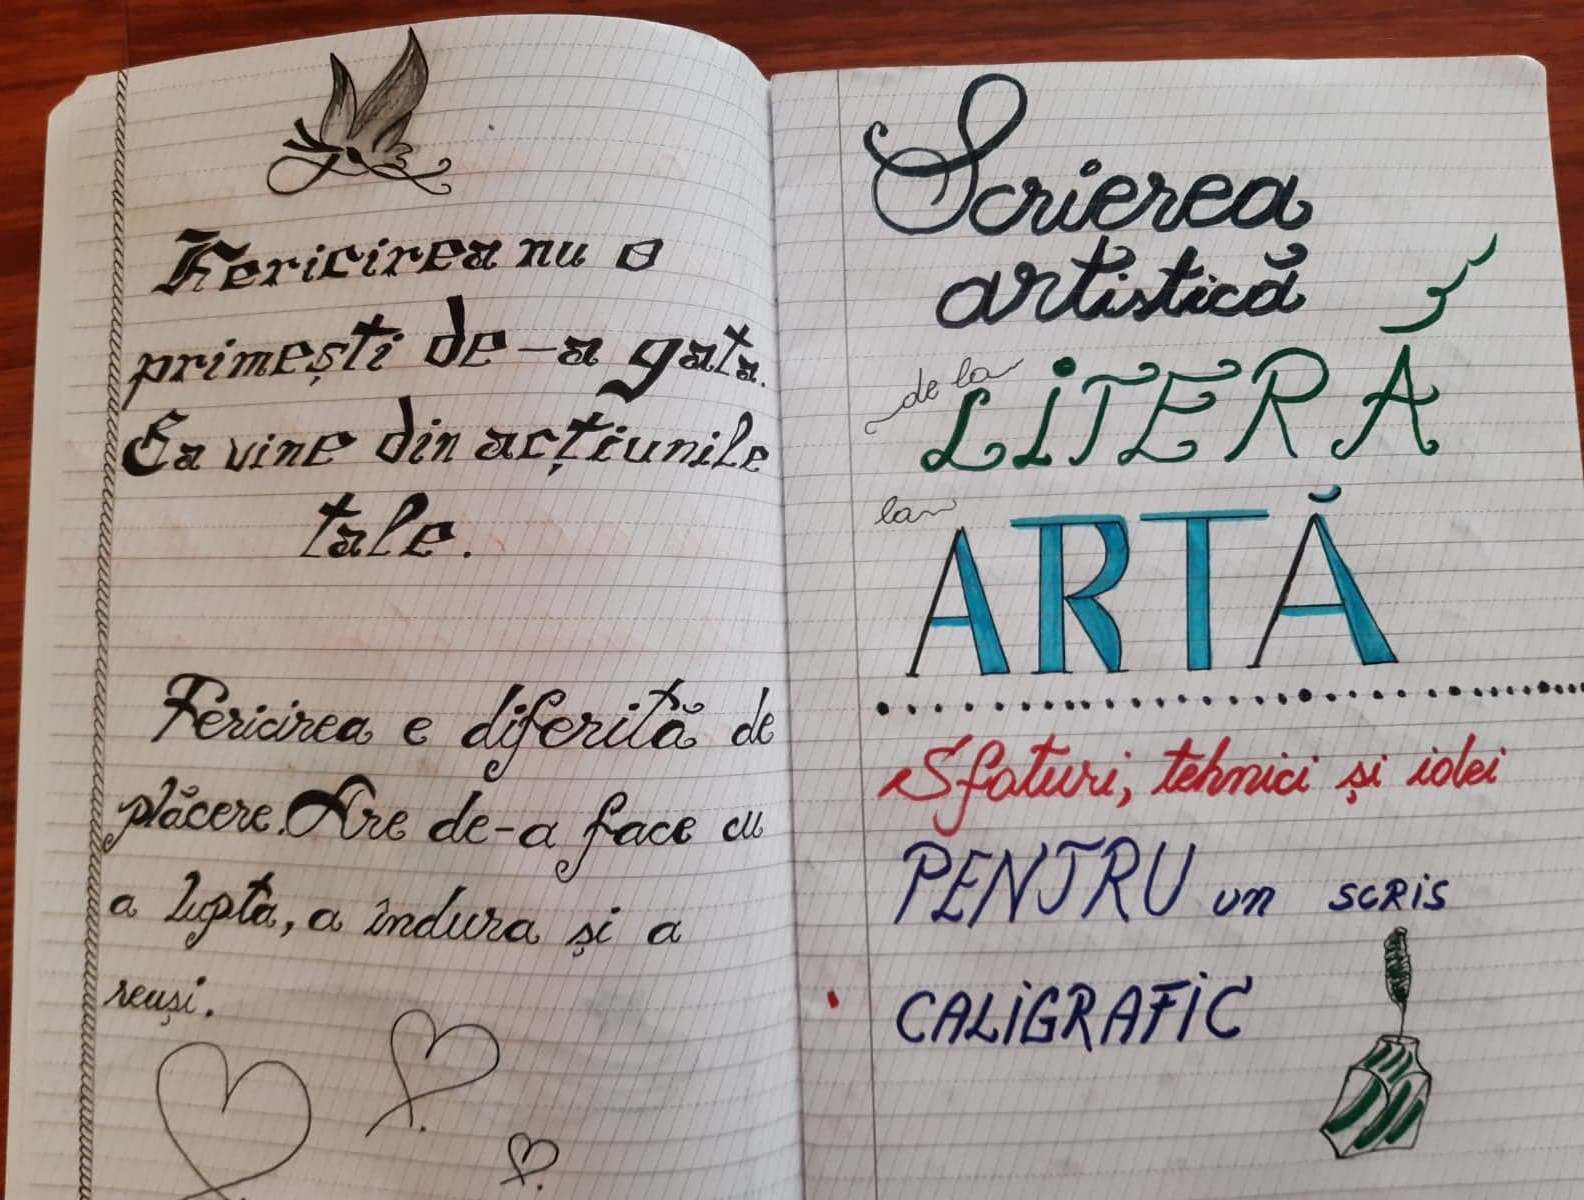 Fericirea nu o
primești de-a gata.
Ea vine din acțiunile
tale.
Fericirea e diferită de
plăcere. Are de-a face cu
a lupta, a îndura și a
reuși.
Scrierea
artistică
de la LITERĂ
la ARTĂ
Sfaturi, tehnici și idei
PENTRU un SCRIS
CALIGRAFIC